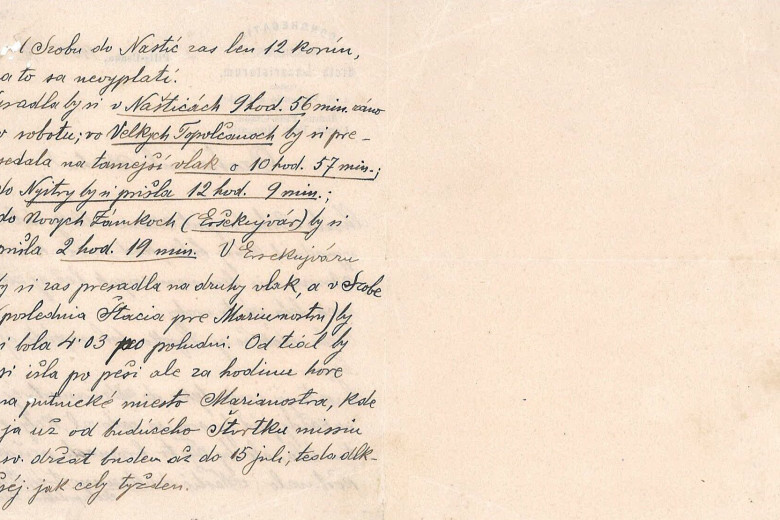 Szobu do Naštíc zas len 12 korún,
a to sa nevyplatí.
by si v Našticách 9 hod. 56 min. ráno
v robotu; vo Velkych Topolčanoch by si pre-
sedala na tamejší vlak o 10 hod. 57 min.;
do Nyitry by si prišla 12 hod. 9 min.;
do Nových Zámkoch (Ersekujvár) by si
prišla 2 hod. 19 min. V Ersekujváru
by si zas presadla na druhy vlak, a v Szobe
(poslednia Štacia pre Marianostru) by
si bola 4·03 po poludni. Od tiál by
si išla po peši ale za hodinu hore
na putnické miesto Marianostra, kde
ja už od budúsého Štvrtku missiu
sv. držat budem až do 15 juli, teda dlh-
séj. jak cely tyžden.